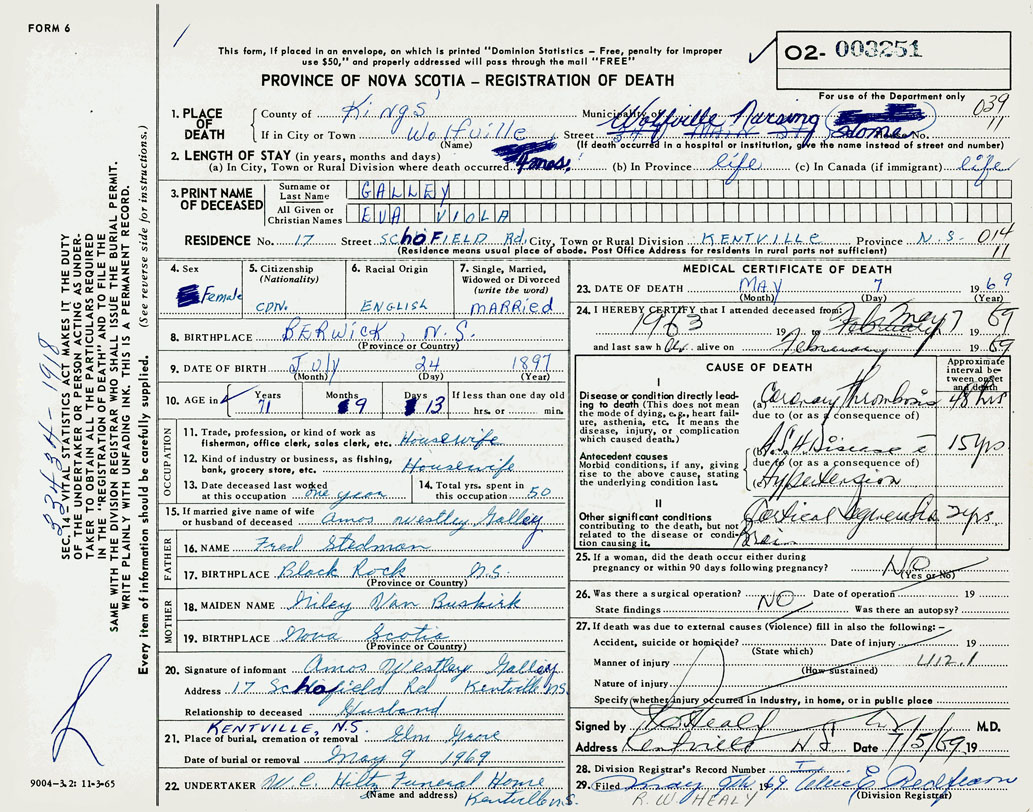 FORM 6
This form, if placed in an envelope, on which is printed "Dominion Statistics – Free, penalty for improper
use $50," and properly addressed will pass through the mail "FREE"
O2- 003251
PROVINCE OF NOVA SCOTIA – REGISTRATION OF DEATH
For use of the Department only
039
11
1. PLACE OF DEATH
County of Kings'
Municipality of
If in City or Town Wolfville
(Name)
Street Wolfville Nursing Home No.
(If death occurred in a hospital or institution, give the name instead of street and number)
2. LENGTH OF STAY (in years, months and days)
(a) In City, Town or Rural Division where death occurred 4 mos. (b) In Province life (c) In Canada (if immigrant) life
3. PRINT NAME OF DECEASED
Surname or Last Name GALLEY
All Given or Christian Names EVA VIOLA
RESIDENCE No. 17 Street SCHOFIELD Rd. City, Town or Rural Division KENTVILLE Province N.S. 014
11
(Residence means usual place of abode. Post Office Address for residents in rural parts not sufficient)
4. Sex
Female
5. Citizenship
(Nationality)
CDN.
6. Racial Origin
ENGLISH
7. Single, Married, Widowed or Divorced
(write the word)
MARRIED
8. BIRTHPLACE BERWICK, N.S.
(Province or Country)
9. DATE OF BIRTH July 24 1897
(Month) (Day) (Year)
10. AGE in
Years Months Days If less than one day old
71 9 13 hrs. or min.
OCCUPATION
11. Trade, profession, or kind of work as
fisherman, office clerk, sales clerk, etc. Housewife
12. Kind of industry or business, as fishing,
bank, grocery store, etc. Housewife
13. Date deceased last worked
at this occupation one year
14. Total yrs. spent in
this occupation 50
15. If married give name of wife
or husband of deceased Amos Westley Galley
FATHER
16. NAME Fred Stedman
17. BIRTHPLACE Black Rock N.S.
(Province or Country)
MOTHER
18. MAIDEN NAME Van Buskirk
19. BIRTHPLACE Nova Scotia
(Province or Country)
20. Signature of informant Amos Westley Galley
Address 17 Schofield Rd Kentville N.S.
Relationship to deceased Husband
KENTVILLE, N.S.
21. Place of burial, cremation or removal Elm Grove
Date of burial or removal May 9 1969
22. UNDERTAKER W.C. Hiltz Funeral Home
(Name and address) Kentville N.S.
MEDICAL CERTIFICATE OF DEATH
23. DATE OF DEATH MAY 7 1969
(Month) (Day) (Year)
24. I HEREBY CERTIFY that I attended deceased from:
1963 19 to May 7 69
and last saw h alive on February 1969
CAUSE OF DEATH
Approximate interval between onset and death
I
Disease or condition directly leading
to death (This does not mean
the mode of dying, e.g., heart failure,
asthenia, etc. It means the
disease, injury, or complication
which caused death.)
(a) Coronary thrombosis 48 hrs
due to (or as a consequence of)
(b) A.S.H. Disease 15 yrs
Antecedent causes
Morbid conditions, if any, giving
rise to the above cause, stating
the underlying condition last.
due to (or as a consequence of)
(c) Hypertension
II
Other significant conditions
contributing to the death, but not
related to the disease or condition
causing it.
Cortical 2 yrs
Brain
25. If a woman, did the death occur either during
pregnancy or within 90 days following pregnancy? NO
(Yes or No)
26. Was there a surgical operation? NO Date of operation 19
State findings Was there an autopsy?
27. If death was due to external causes (violence) fill in also the following: –
Accident, suicide or homicide? Date of injury 19
(State which)
Manner of injury 412.1
(How sustained)
Nature of injury
Specify whether injury occurred in industry, in home, or in public place
Signed by Heald M.D.
Address Kentville N S Date 7/5/69 19
28. Division Registrar's Record Number
29. Filed May 9th 1969
(Division Registrar)
R. W. HEALY
9004–3.2: 11-3-65
33434-1918
SEC. 14 VITAL STATISTICS ACT MAKES IT THE DUTY
OF THE UNDERTAKER OR PERSON ACTING AS UNDERTAKER
TO OBTAIN ALL THE PARTICULARS REQUIRED
IN THE "REGISTRATION OF DEATH" AND TO FILE THE
SAME WITH THE DIVISION REGISTRAR WHO SHALL ISSUE THE BURIAL PERMIT.
WRITE PLAINLY WITH UNFADING INK. THIS IS A PERMANENT RECORD.
Every item of information should be carefully supplied. (See reverse side for instructions.)